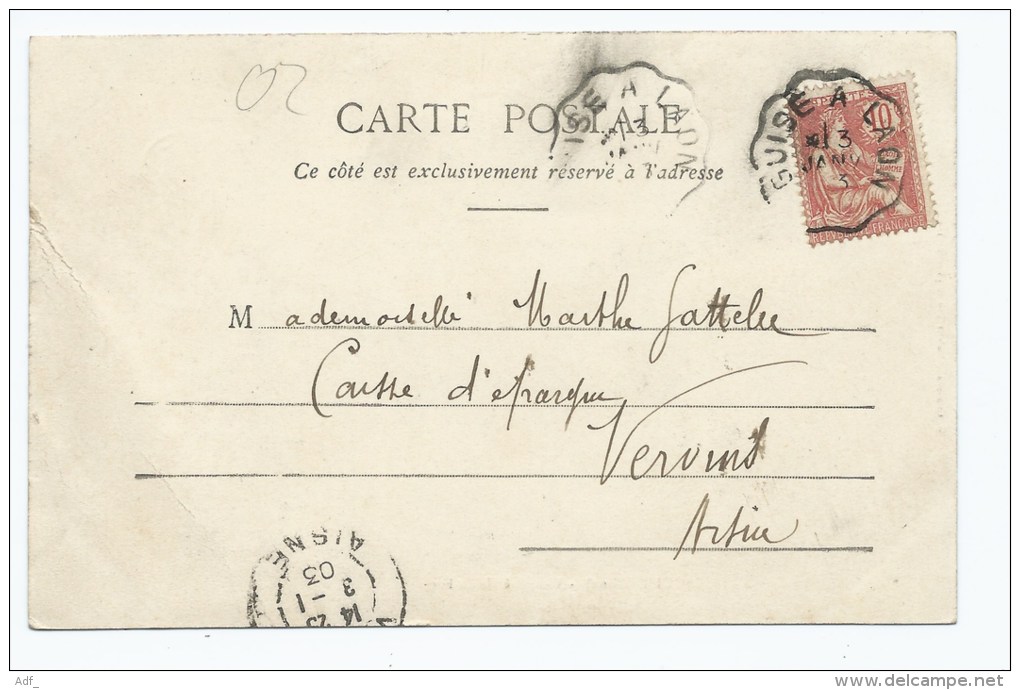 02
CARTE POSTALE
Ce côté est exclusivement réservé à l'adresse
GUISE A LAON
3
JANV
3
10
REPUBLIQUE FRANÇAISE
ISE A LAON
3
Mademoiselle Marthe Gattelée
Caisse d'épargne
Vervins
Aisne
AISNE
03
3 - 1
14 25
Adf_
www.delcampe.net